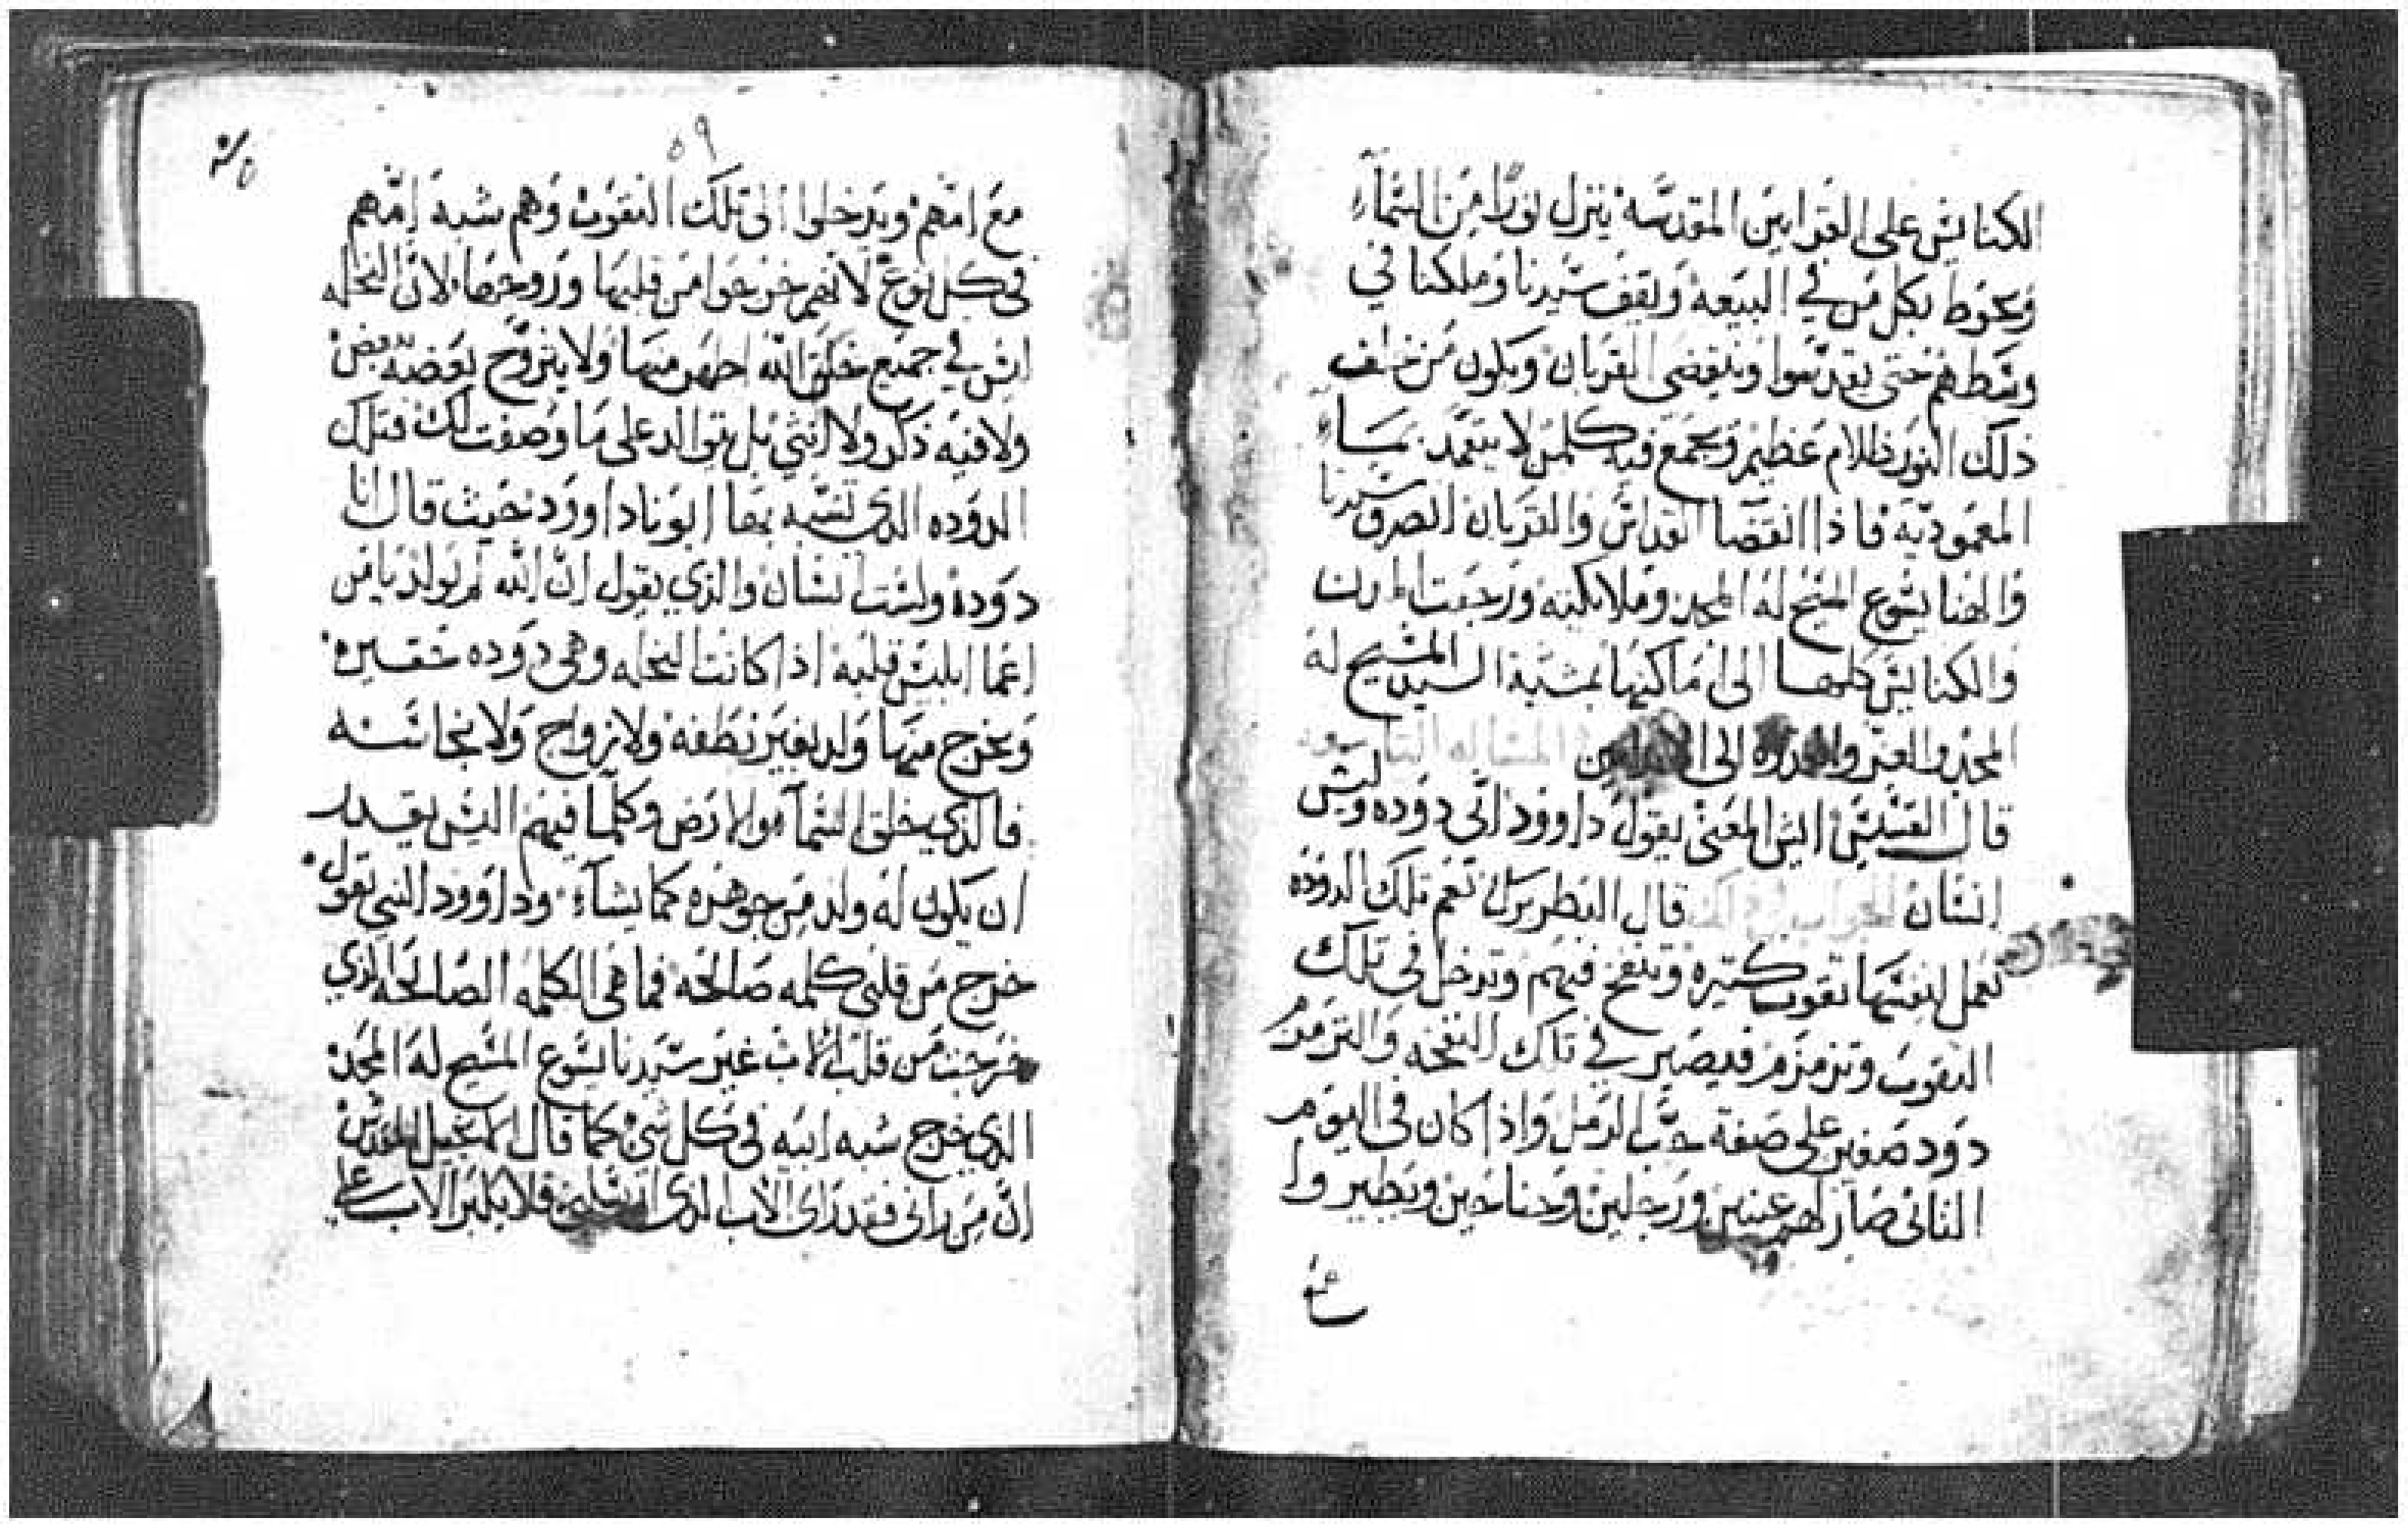 الكنايس على القرابين المقدسه ينزل نورًا من السماء
ويحوط بكل من في البيعه ويقف سيدنا وملكنا في
وسطهم حتى يقدسوا وينقضى القربان ويكون من خلف
ذلك النور ظلام عظيم ويجمع فيه كلمن لا يتعمد بماء
المعموديه فاذا انقضا القداس والقربان انصرف سيدنا
والهنا يشوع المسيح له المجد وملايكته ورجعت
والكنايس كلها الى اماكنها بمشية السيد المسيح له
المجد والعز والقدره الى المساله التاسعه
قال القسيس ايش المعنى يقول داوود انى دوده وليس
انسان الجواب قال البطريرك نعم تلك الدوده
تعمل لنفسها نقوب كتيره وتنفخ فيهم وتدخل في تلك
النقوب وتزمزم فيصير في تلك النفخه والتزمزم
دود صغير على صفة حب الرمل واذا كان في اليوم
التانى صار لهم عينين ورجلين وجناحين ويطيروا
٥٩
مع امهم ويدخلوا الى تلك النقوب وهم شبه امهم
في كل نوع لانهم خرجوا من قلبها وروحها لان النحله
ليس في جميع خلق الله اطهر منها ولا يتزوج بعضه بعض
ولا فيه ذكر ولا انثي بل تتوالد على ما وصفت لك فتلك
الدوده الذي تشبه بها ابونا داوود حيث قال انا
دوده ولست انسان والذي يقول ان الله لم يولد يا من
اعما ابليس قلبه اذا كانت النحله وهى دوده حقيره
ويخرج منها ولد بغير نطفه ولا زواج ولا نجاسه
فالذي خلق السما والارض وكلما فيهم اليس يقدر
ان يكون له ولد من جوهره كما يشاء وداوود النبي يقول
خرج من قلبي كلمه صالحه فما هى الكلمه الصالحه الذي
خرجت من قلب الاب غير سيدنا يشوع المسيح له المجد
الذي خرج شبه ابيه في كل شى كما قال الانجيل المقدس
ان من رانى فقد راى الاب الذى ارسلنى فلا يكبر الاب على